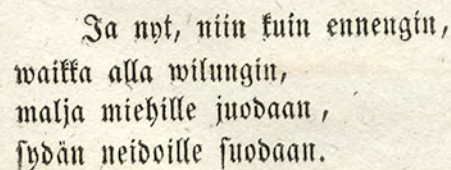 Ja nyt, niin kuin ennengin,
waikka alla wilungin,
malja miehille juodaan,
sydän neidoille suodaan.